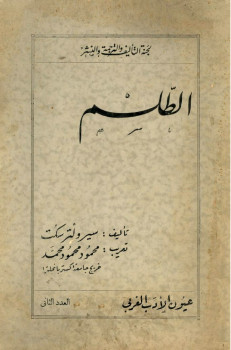 لجنة التأليف والترجمة والنشر
الطلسم
تأليف : سير ولتر سكت
تعريب : محمود محمود محمد
خريج جامعة اكستر بانجلترا
عيون الأدب الغربي
العدد الثاني